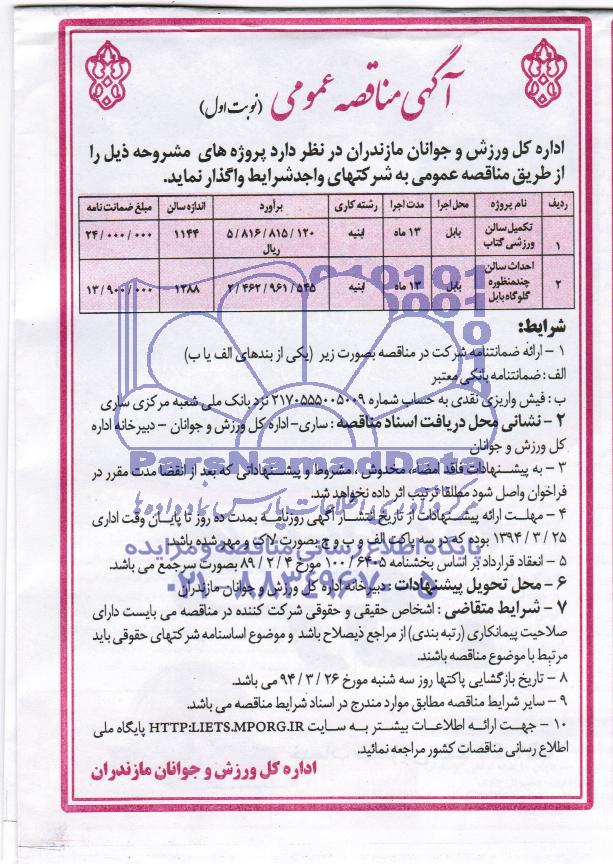 آگهی مناقصه عمومی (نوبت اول)
اداره کل ورزش و جوانان مازندران در نظر دارد پروژه های مشروحه ذیل را
از طریق مناقصه عمومی به شرکتهای واجدشرایط واگذار نماید.
ردیف نام پروژه محل اجرا مدت اجرا رشته کاری برآورد اندازه سالن مبلغ ضمانت نامه
۱ تکمیل سالن ورزشی گتاب بابل ۱۳ ماه ابنیه ۵/۸۱۶/۸۱۵/۱۲۰ ریال ۱۱۴۴ ۲۴/۰۰۰/۰۰۰
۲ احداث سالن چندمنظوره گلوگاه بابل بابل ۱۳ ماه ابنیه ۲/۴۶۲/۹۶۱/۵۴۵ ۱۲۸۸ ۱۳/۹۰۰/۰۰۰
شرایط:
۱ - ارائه ضمانتنامه شرکت در مناقصه بصورت زیر (یکی از بندهای الف یا ب)
الف: ضمانتنامه بانکی معتبر
ب: فیش واریزی نقدی به حساب شماره ۲۱۷۰۵۵۵۰۰۵۰۰۹ نزد بانک ملی شعبه مرکزی ساری
۲ - نشانی محل دریافت اسناد مناقصه: ساری- اداره کل ورزش و جوانان - دبیرخانه اداره
کل ورزش و جوانان
ParsNamadData
۳ - به پیشنهادات فاقد امضاء، مخدوش، مشروط و پیشنهاداتی که بعد از انقضا مدت مقرر در
فراخوان واصل شود مطلقا ترتیب اثر داده نخواهد شد.
۴ - مهلت ارائه پیشنهادات از تاریخ انتشار آگهی روزنامه بمدت ده روز تا پایان وقت اداری
۱۳۹۴/۳/۲۵ بوده که در سه پاکت الف و ب و ج بصورت لاک و مهر شده باشد.
پایگاه اطلاع رسانی مناقصه و مزایده
۵ - انعقاد قرارداد بر اساس بخشنامه ۱۰۰/۶۴۰۵ مورخ ۸۹/۲/۴ بصورت سرجمع می باشد.
۶ - محل تحویل پیشنهادات: دبیرخانه اداره کل ورزش و جوانان مازندران
۰۲۱-۸۸۳۴۹۶۷۰-۵
۷ - شرایط متقاضی: اشخاص حقیقی و حقوقی شرکت کننده در مناقصه می بایست دارای
صلاحیت پیمانکاری (رتبه بندی) از مراجع ذیصلاح باشد و موضوع اساسنامه شرکتهای حقوقی باید
مرتبط با موضوع مناقصه باشند.
۸ - تاریخ بازگشایی پاکتها روز سه شنبه مورخ ۹۴/۳/۲۶ می باشد.
۹ - سایر شرایط مناقصه مطابق موارد مندرج در اسناد شرایط مناقصه می باشد.
۱۰ - جهت ارائه اطلاعات بیشتر به سایت HTTP:LIETS.MPORG.IR پایگاه ملی
اطلاع رسانی مناقصات کشور مراجعه نمائید.
اداره کل ورزش و جوانان مازندران